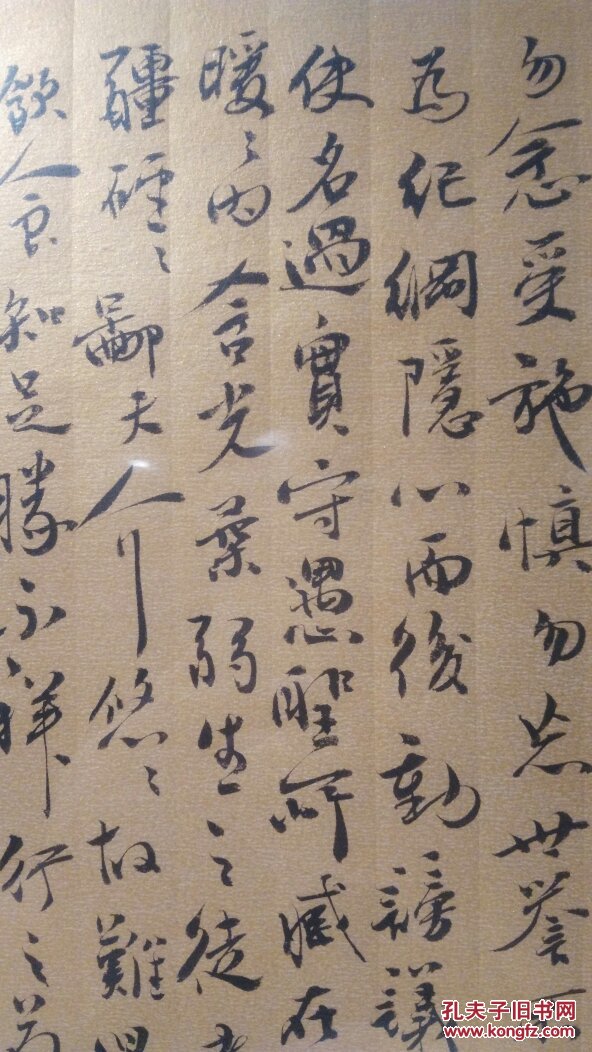 勿念受施慎勿忘世譽
為紀綱隱心而後動謗議
使名過實守愚聖所臧在
暖々內含光柔弱生之徒
疆硜々鄙夫介悠々故難
飲食知足勝不祥行之苟
孔夫子旧书网
www.kongfz.com